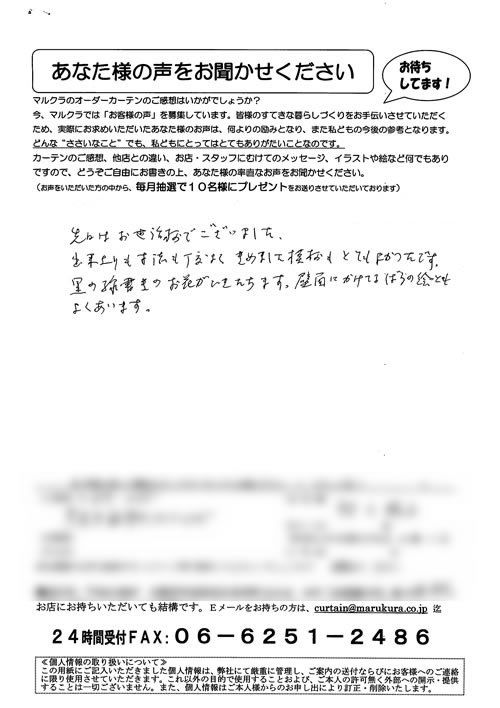 あなた様の声をお聞かせください
お待ち
してます！
マルクラのオーダーカーテンのご感想はいかがでしょうか？
今、マルクラでは「お客様の声」を募集しています。皆様のすてきな暮らしづくりをお手伝いさせていただく
ため、実際にお求めいただいたあなた様のお声は、何よりの励みとなり、また私どもの今後の参考となります。
どんな“ささいなこと”でも、私どもにとってはとてもありがたいことなのです。
カーテンのご感想、他店との違い、お店・スタッフにむけてのメッセージ、イラストや絵など何でもあり
ですので、どうぞご自由にお書きの上、あなた様の率直なお声をお聞かせください。
（お声をいただいた方の中から、毎月抽選で１０名様にプレゼントをお送りさせていただいております）
先日はお世話様でございました、
出来上りも寸法も丁度よく きめました模様も とてもよかったです。
黒の線書きの お花がひきたちます。壁面にかけてるばらの絵とも
よくあいます。
お店にお持ちいただいても結構です。Ｅメールをお持ちの方は、curtain@marukura.co.jp 迄
２４時間受付FAX：０６－６２５１－２４８６
≪個人情報の取り扱いについて≫
この用紙にご記入いただきました個人情報は、弊社にて厳重に管理し、ご案内の送付ならびにお客様へのご連絡
に限り使用させていただきます。これ以外の目的で使用することおよび、ご本人の許可無く外部への開示・提供
することは一切ございません。また、個人情報はご本人様からのお申し出により訂正・削除いたします。